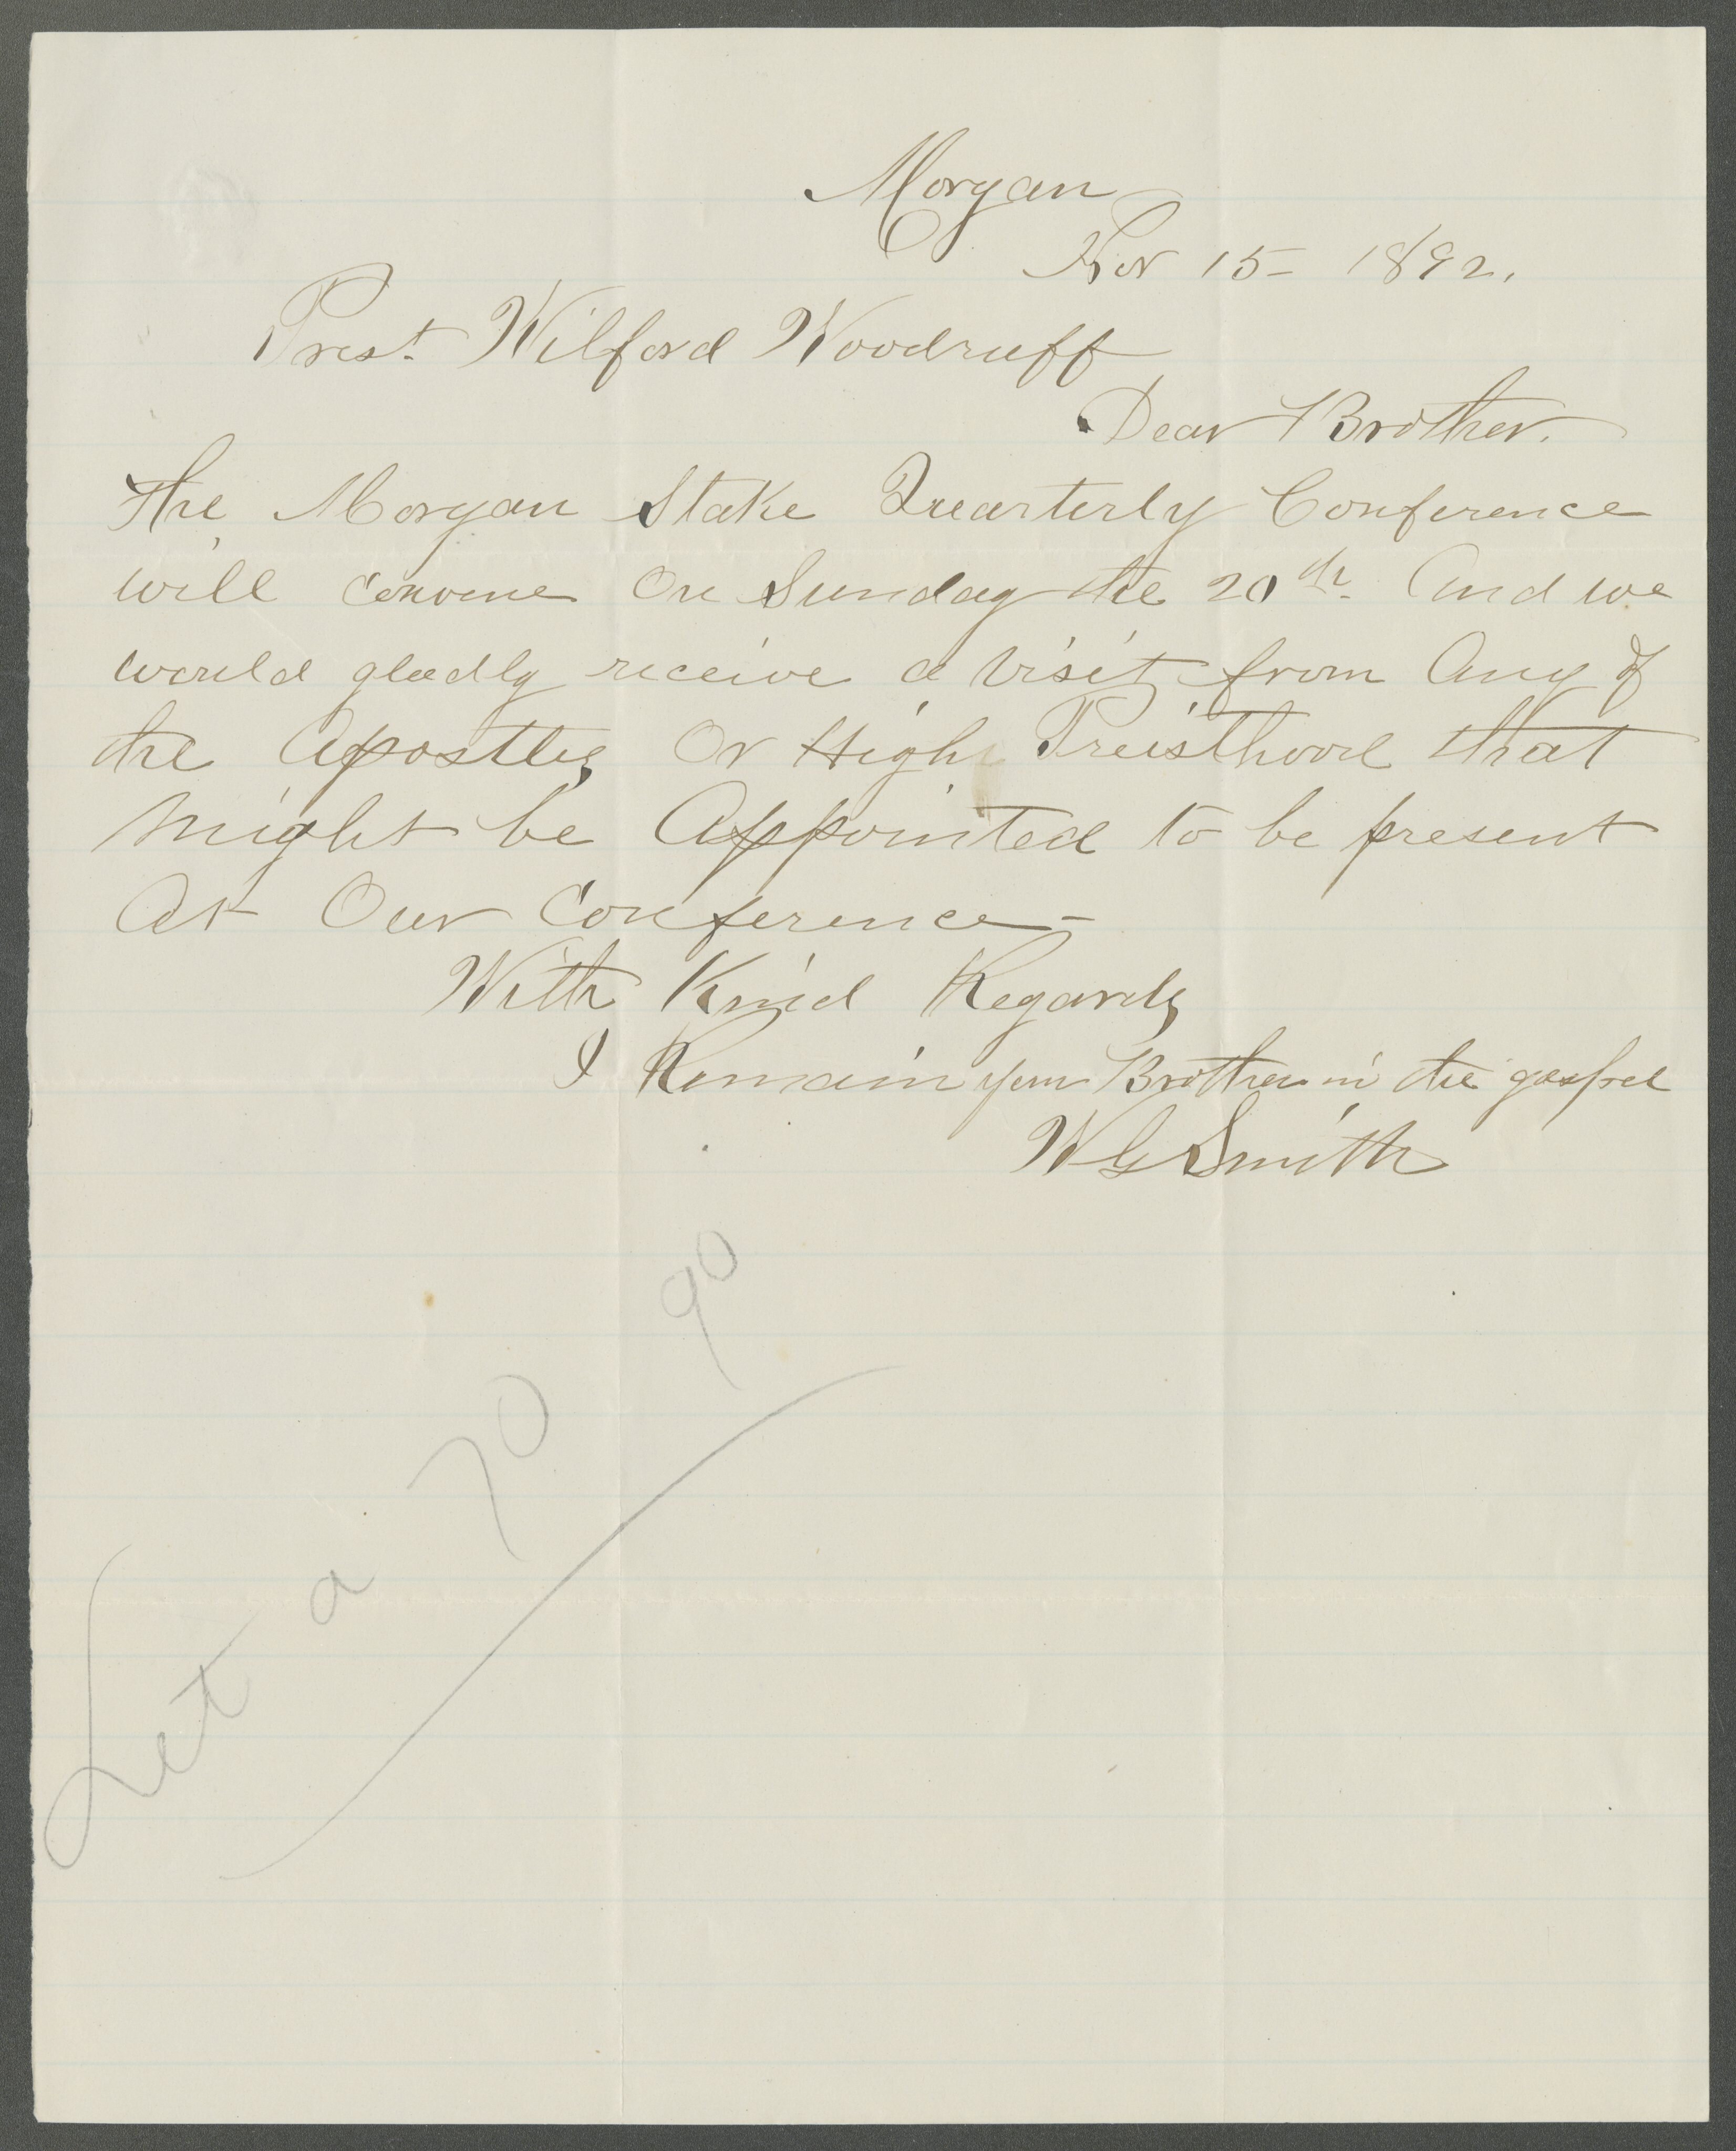 Morgan
Nov 15- 1892.
Prest. Wilford Woodruff
Dear Brother.
The Morgan Stake Quarterly Conference
will convene On Sunday the 20th. And we
would gladly receive a visit from Any of
the Apostles Or High Preisthood that
might be Appointed to be present
At Our Conference-
With Kind Regards
I Remain your Brother in the gospel
W G Smith
Let a 70 go